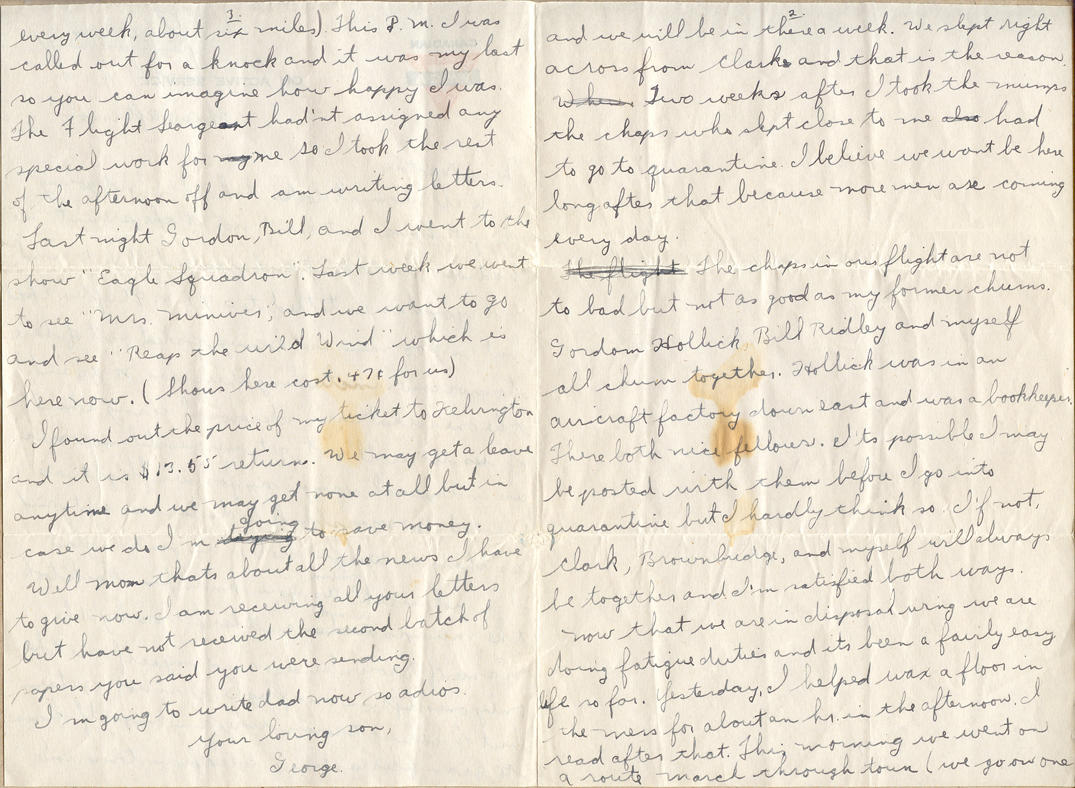 2.
and we will be in there a week. We slept right
across from Clark and that is the reason.
When Two weeks after I took the mumps
the chaps who slept close to me also had
to go to quarantine. I believe we wont be here
long after that because more men are coming
every day.
The flight The chaps in our flight are not
to bad but not as good as my former chums.
Gordom Hollick, Bill Ridley and myself
all chum together. Hollick was in an
aircraft factory down east and was a bookkeeper.
There both nice fellows. I'ts possible I may
be posted with them before I go into
quarantine but I hardly think so. I'f not,
Clark, Brownbridge, and myself will always
be together and I'm satisfied both ways.
Now that we are in disposal wing we are
doing fatigue duties and its been a fairly easy
life so far. Yesterday, I helped wax a floor in
the mess for about an hr. in the afternoon. I
read after that. This morning we went on
a route march through town (we go on one
3.
every week, about six miles). This P.M. I was
called out for a knock and it was my last
so you can imagine how happy I was.
The Flight Seargeant had'nt assigned any
special work for my me so I took the rest
of the afternoon off and am writing letters.
Last night Gordon, Bill, and I went to the
show "Eagle Squadron". Last week we went
to see "Mrs. Miniver", and we want to go
and see "Reap the wild Wind" which is
here now. (Shows here cost .47¢ for us)
I found out the price of my ticket to Kelvington
and it is $13.55 return. We may get a leave
anytime and we may get none at all but in
case we do I'm going to save money.
Well mom thats about all the news I have
to give now. I am receiving all your letters
but have not received the second batch of
papers you said you were sending.
I'm going to write dad now so adios.
Your loving son,
George.